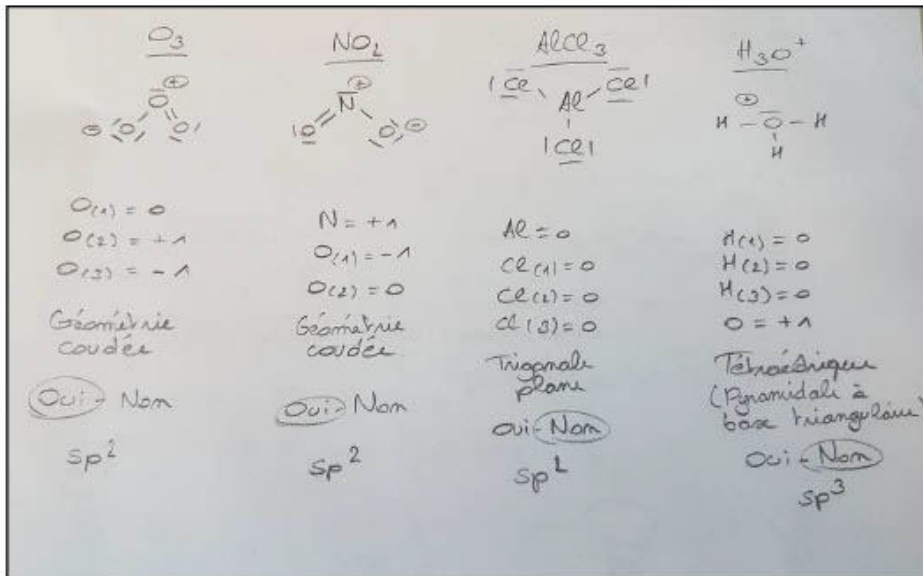 O₃
⊕
O
⊖ O O
O(1) = 0
O(2) = +1
O(3) = -1
Géométrie
coudée
Oui - Non
sp²
NO₂
⊕
N
O O ⊖
N = +1
O(1) = -1
O(2) = 0
Géométrie
coudée
Oui - Non
sp²
AlCl₃
Cl Al Cl
Cl
Al = 0
Cl(1) = 0
Cl(2) = 0
Cl(3) = 0
Trigonale
plane
Oui - Non
H₃O⁺
⊕
H - O - H
H
H(1) = 0
H(2) = 0
H(3) = 0
O = +1
(Pyramidale à
base triangulaire)
Oui - Non
sp³